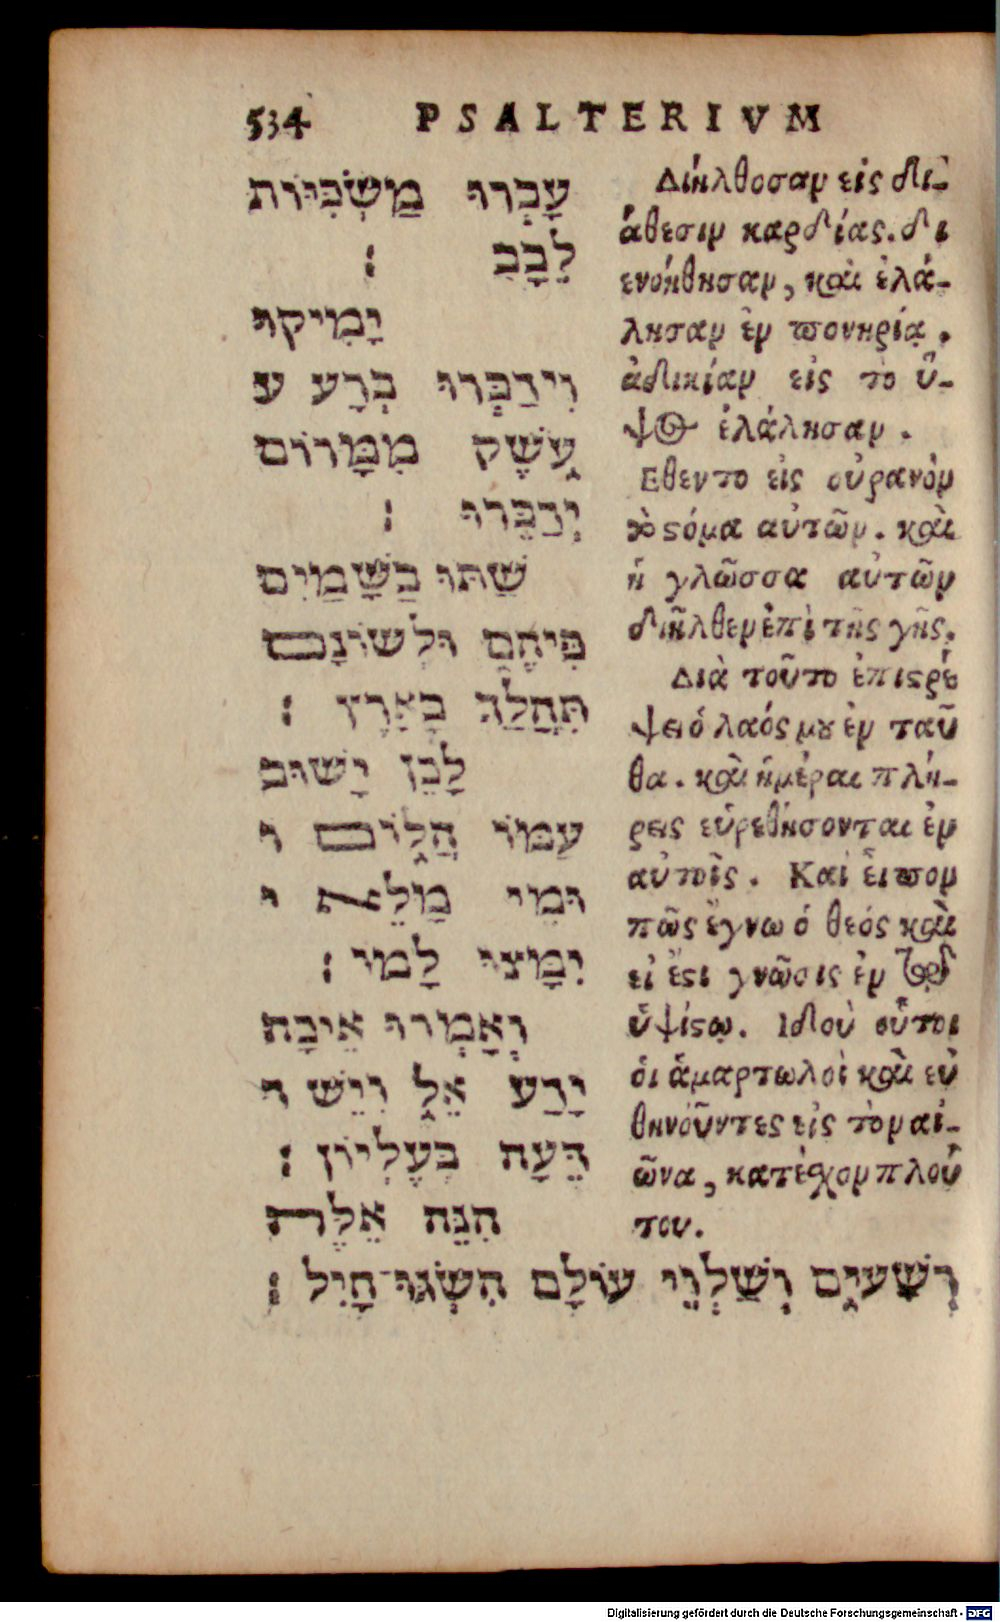 534 PSALTERIVM
עָבְרוּ מַשְׂכִּיּוֹת
לֵבָב ׃
יָמִיקוּ
וִידַבְּרוּ בְרָע ע
עֹשֶׁק מִמָּרוֹם
יְדַבֵּרוּ ׃
שַׁתּוּ בַשָּׁמַיִם
פִּיהֶם וּלְשׁוֹנָם
תִּהֲלַךְ בָּאָרֶץ ׃
לָכֵן יָשׁוּב
עַמּוֹ הֲלוֹם ו
וּמֵי מָלֵא י
יִמָּצוּ לָמוֹ ׃
וְאָמְרוּ אֵיכָה
יָדַע אֵל וְיֵשׁ ד
דֵּעָה בְעֶלְיוֹן ׃
הִנֵּה אֵלֶּה
רְשָׁעִים וְשַׁלְוֵי עוֹלָם הִשְׂגּוּ־חָיִל ׃
Διήλθοσαν εἰς δι-
άθεσιν καρδίας. δι
ενοήθησαν, καὶ ἐλά-
λησαν ἐν πονηρίᾳ.
ἀδικίαν εἰς το ὕ-
ψος ἐλάλησαν.
Εθεντο εἰς οὐρανὸν
τὸ στόμα αὐτῶν. καὶ
ἡ γλῶσσα αὐτῶν
διῆλθεν ἐπὶ τῆς γῆς.
Διὰ τοῦτο ἐπιστρέ
ψει ὁ λαός μου ἐν ταῦ
θα. καὶ ἡμέραι πλή-
ρεις εὑρεθήσονται ἐν
αὐτοῖς. Καὶ εἶπον
πῶς ἔγνω ὁ θεός καὶ
εἰ ἔστι γνῶσις ἐν τῷ
ὑψίστῳ. Ιδοὺ οὗτοι
ὁι ἁμαρτωλοὶ καὶ εὐ
θηνοῦντες εἰς τὸν αἰ-
ῶνα, κατέσχον πλού
του.
Digitalisierung gefördert durch die Deutsche Forschungsgemeinschaft - DFG